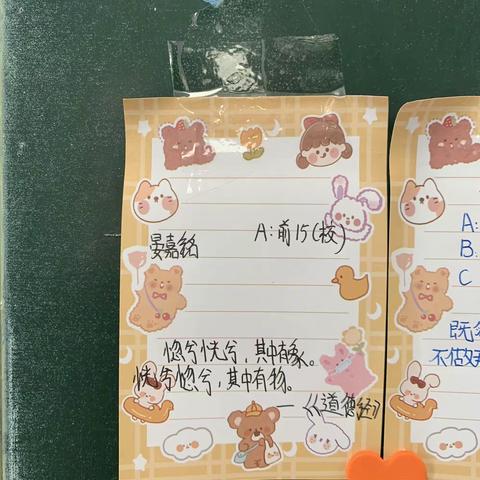 晏嘉铭 A:前15(校)
惚兮恍兮,其中有象。
恍兮惚兮,其中有物。
——《道德经》
A:
B.
C
既
不做